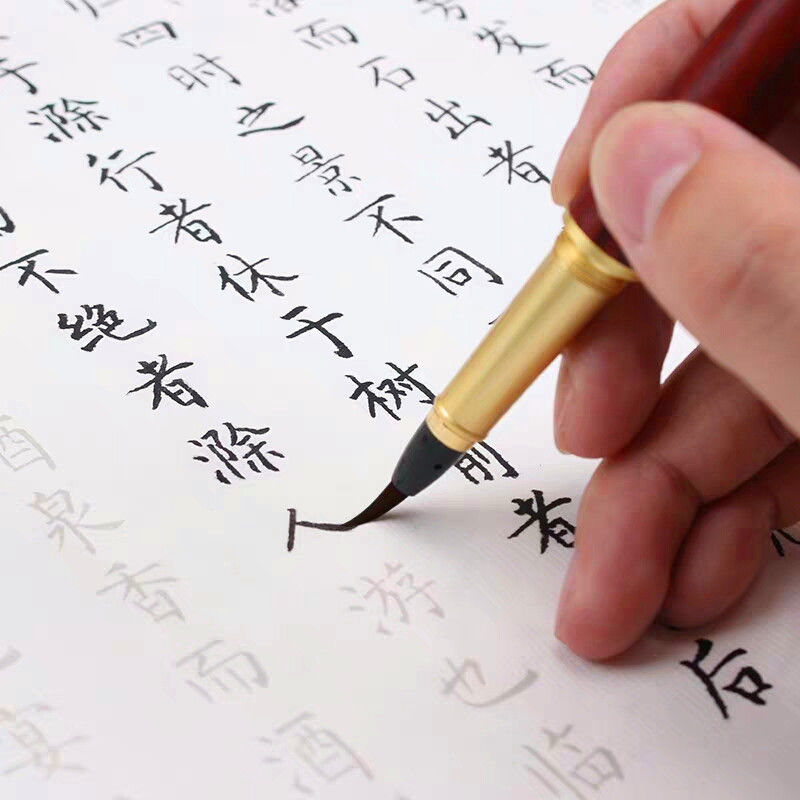 芳发而
而石出者
四时之景不同
于滁行者休于树前者后
不绝者滁游也临
酒泉香而酒
宴